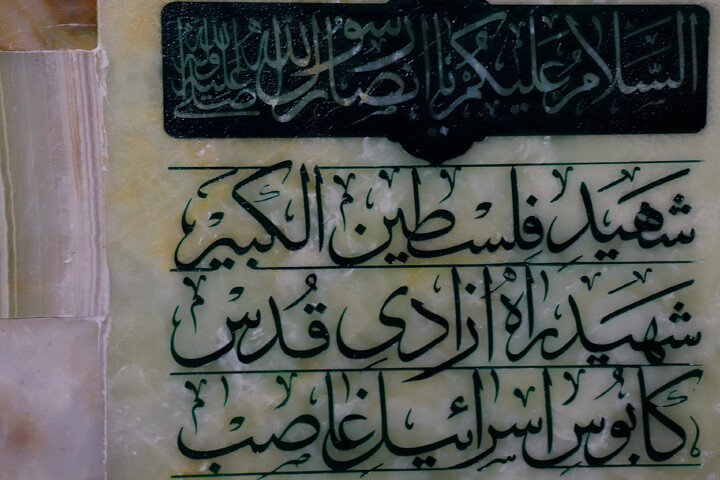 السلام علیکم یا انصار رسول الله صلی الله علیه وآله
شهید فلسطین الکبیر
شهید راه آزادی قدس
کابوس اسرائیل غاصب